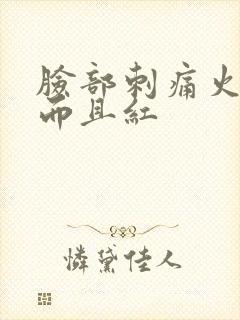 臉部刺痛火
而且紅
憐黛佳人